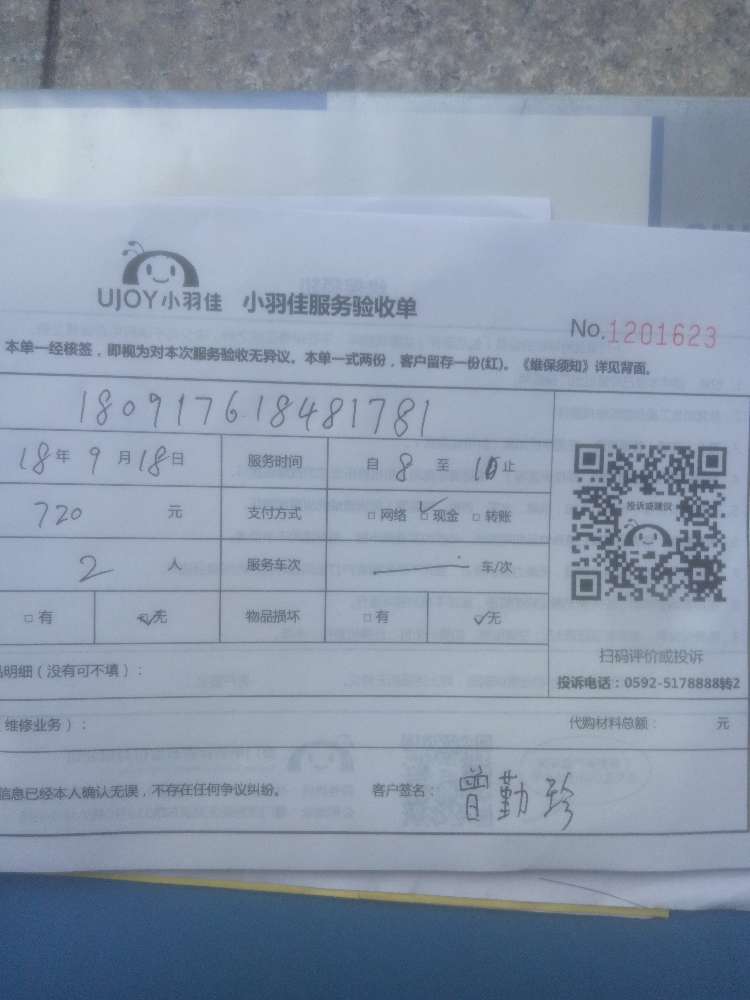 UJOY小羽佳 小羽佳服务验收单
No.1201623
本单一经核签，即视为对本次服务验收无异议。本单一式两份，客户留存一份(红)。《维保须知》详见背面。
180917618481781
18年9月18日 服务时间 自8至10止
720 元 支付方式 □网络 ☑现金 □转账
2 人 服务车次 — 车/次
□有 ☑无 物品损坏 □有 ☑无
投诉或建议
扫码评价或投诉
投诉电话：0592-5178888转2
明细（没有可不填）：
维修业务）： 代购材料总额： 元
信息已经本人确认无误，不存在任何争议纠纷。 客户签名：曾勤珍